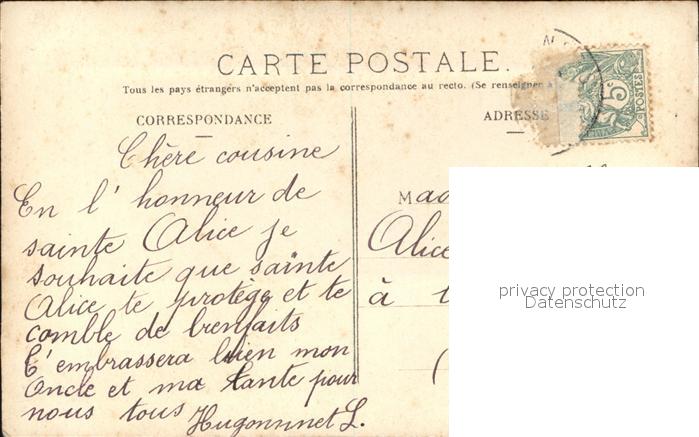 CARTE POSTALE.
Tous les pays étrangers n'acceptent pas la correspondance au recto. (Se renseigner à
CORRESPONDANCE
ADRESSE
5c
POSTES
Chère cousine
En l'honneur de
sainte Alice je
souhaite que sainte
Alice te protège et te
comble de bienfaits
T'embrassera bien mon
Oncle et ma tante pour
nous tous Hugonninet L.
Alice
à
privacy protection
Datenschutz